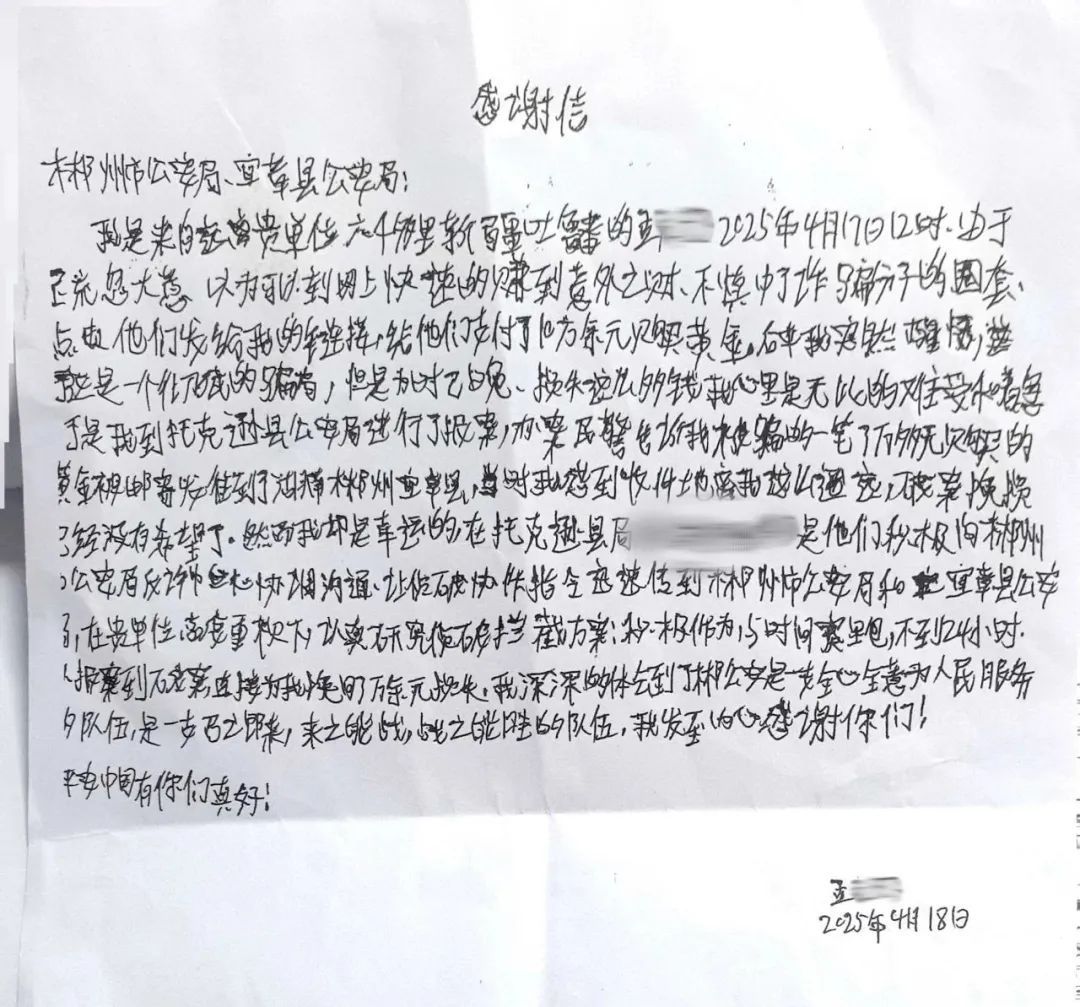 感谢信
郴州市公安局、宜章县公安局:
我是来自远离贵单位六千多里新疆吐鲁番的孟 2025年4月17日12时、由于
疏忽大意 以为可以到网上快速的赚到意外之财、不慎中了诈骗分子的圈套、
点击他们发给我的链接,给他们支付了10万余元购买黄金,后来我突然醒悟,
这是一个彻底的骗局,但是为时已晚、损失这么多钱我心里是无比的难受和着急
于是我到托克逊县公安局进行了报案,办案民警告诉我被骗的一笔了万多元购买的
黄金被邮寄发往到了湖南郴州宜章县,当时我感到收件地离我这么遥远,破案挽损
经没有希望了。然而我却是幸运的,在托克逊县局 是他们积极向郴州
公安局反诈中心协调沟通、让侦破协作指令迅速传到郴州市公安局和宜章县公安
,在贵单位高度重视下,认真研究侦破拦截方案;积极作为,与时间赛跑,不到24小时
报案到破案连接为我挽回了万余元损失,我深深的体会到了郴公安是一支全心全意为人民服务
队伍,是一支召之即来,来之能战,战之能胜的队伍,我发至内心感谢你们!
平安中国有你们真好!
孟
2025年4月18日